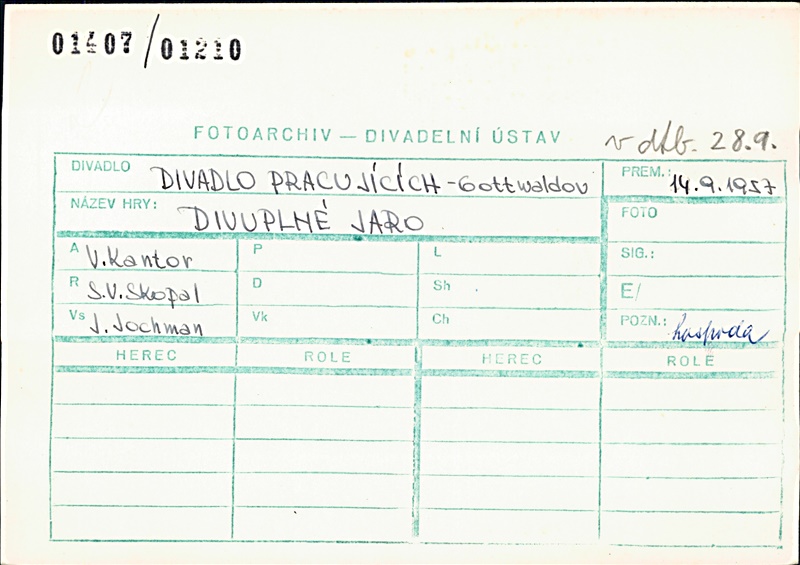 01407/01210
FOTOARCHIV — DIVADELNÍ ÚSTAV
v dtb. 28.9.
DIVADLO DIVADLO PRACUJÍCÍCH - Gottwaldov
PREM.: 14.9.1957
NÁZEV HRY: DIVUPLNÉ JARO
FOTO
A V. Kantor
P
L
SIG.:
R S.V. Skopal
D
Sh
E/
Vs J. Jochman
Vk
Ch
POZN.: hospoda
HEREC ROLE HEREC ROLE